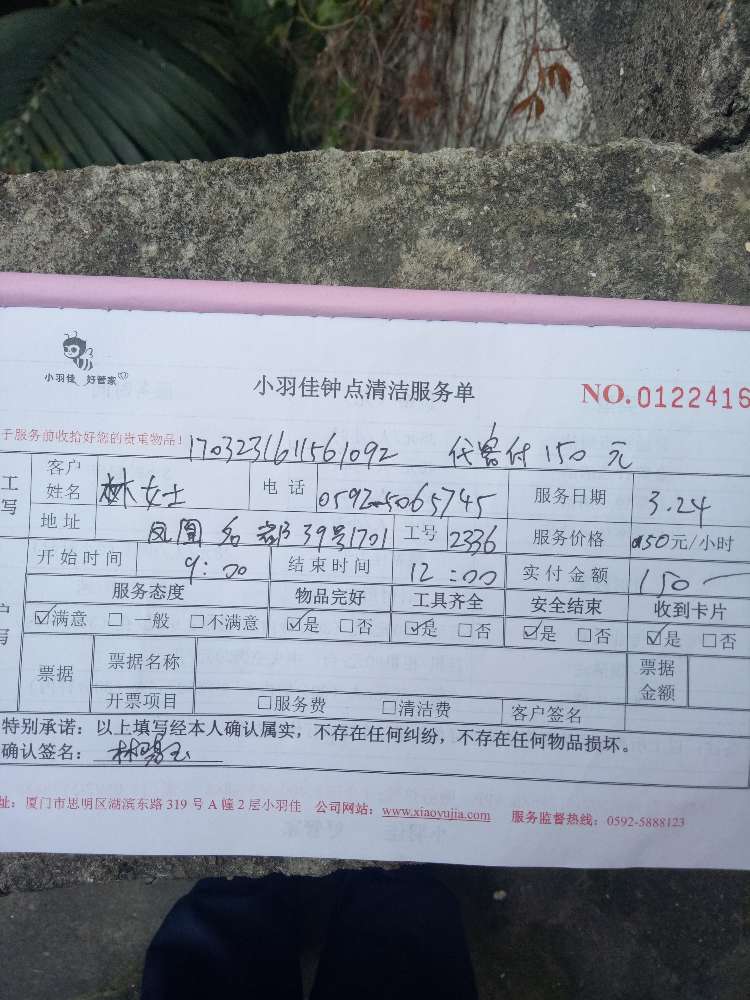 小羽佳 好管家
小羽佳钟点清洁服务单
NO.0122416
于服务前收拾好您的贵重物品! 1703231611561092 代客付150元
工 客户姓名 林女士 电话 0592-5065745 服务日期 3.24
写 地址 凤凰名都39号1701 工号 2336 服务价格 50元/小时
开始时间 9:00 结束时间 12:00 实付金额 150
服务态度 物品完好 工具齐全 安全结束 收到卡片
☑满意 □一般 □不满意 ☑是 □否 ☑是 □否 ☑是 □否 ☑是 □否
写 票据 票据名称 票据金额
开票项目 □服务费 □清洁费 客户签名
特别承诺：以上填写经本人确认属实，不存在任何纠纷，不存在任何物品损坏。
确认签名：林
址：厦门市思明区湖滨东路319号A幢2层小羽佳 公司网站：www.xiaoyujia.com 服务监督热线：0592-5888123